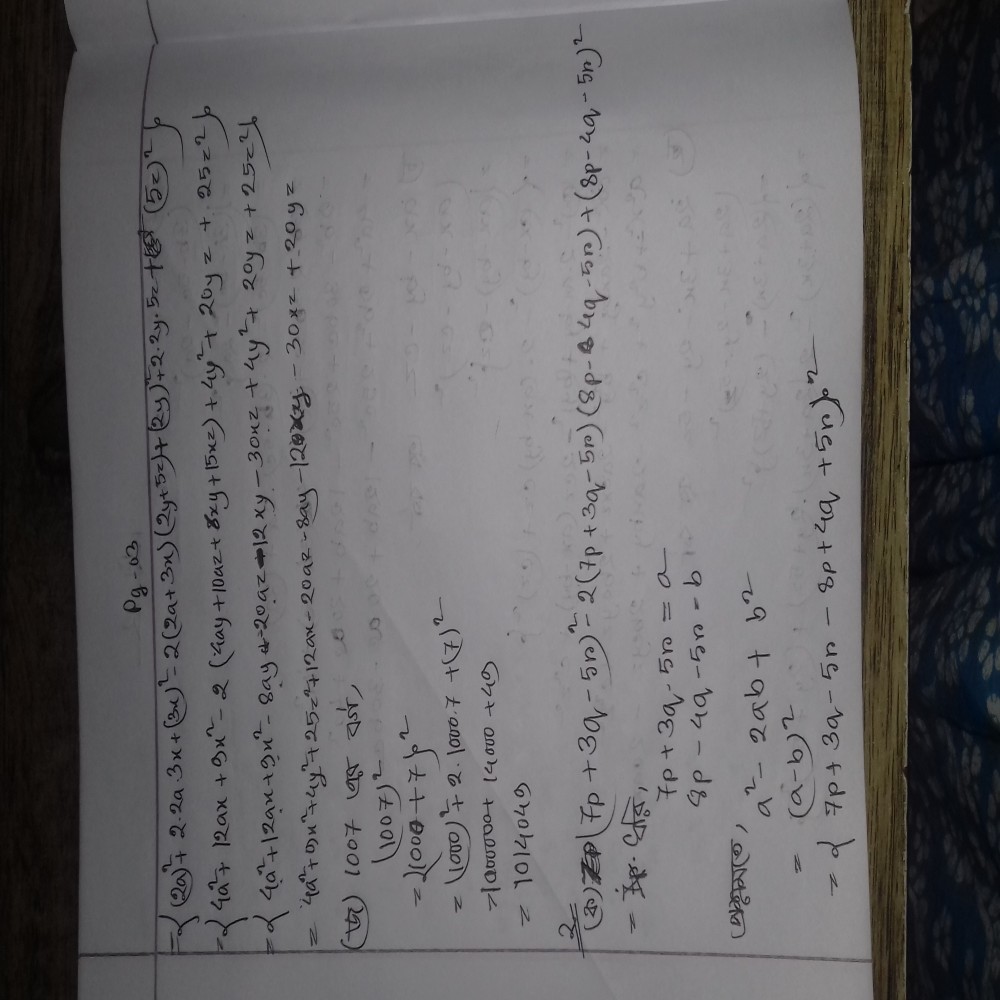 Pg-03
= { (2a)² + 2.2a.3x + (3x)² - 2(2a+3x)(2y+5z) + (2y)² + 2.2y.5z + (5z)² }
= { 4a² + 12ax + 9x² - 2 (4ay + 10az + 6xy + 15xz) + 4y² + 20yz + 25z² }
= { 4a² + 12ax + 9x² - 8ay - 20az - 12xy - 30xz + 4y² + 20yz + 25z² }
= 4a² + 9x² + 4y² + 25z² + 12ax - 20az - 8ay - 12xy - 30xz + 20yz
1007 এর বর্গ,
(1007)²
= (1000 + 7)²
= (1000)² + 2.1000.7 + (7)²
= 1000000 + 14000 + 49
= 1014049
2
(ক) (7p + 3q - 5r)² - 2(7p + 3q - 5r)(8p - 4q - 5r) + (8p - 4q - 5r)²
= ধরি,
7p + 3q - 5r = a
8p - 4q - 5r = b
a² - 2ab + b²
= (a-b)²
= { 7p + 3q - 5r - 8p + 4q + 5r }²